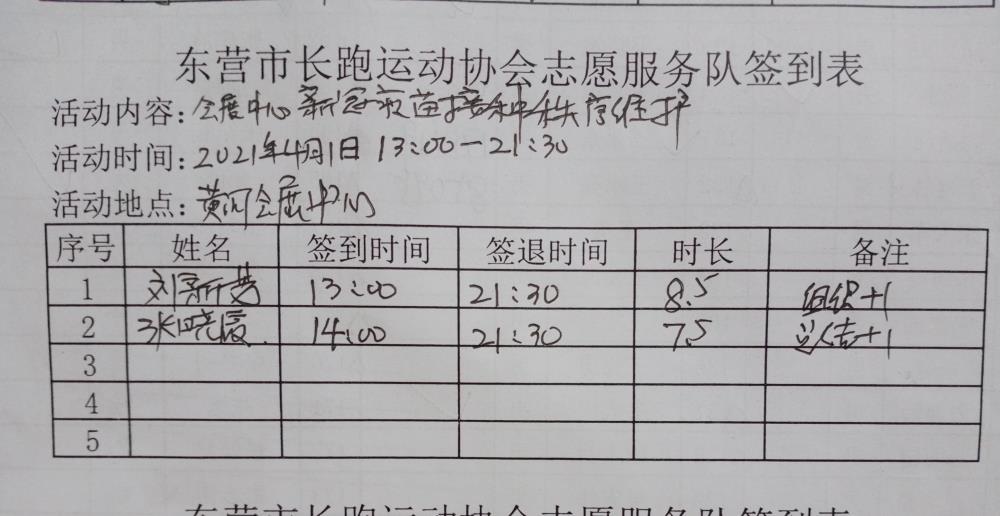 东营市长跑运动协会志愿服务队签到表
活动内容:会展中心新冠疫苗接种秩序维护
活动时间:2021年4月1日 13:00-21:30
活动地点:黄河会展中心
序号 姓名 签到时间 签退时间 时长 备注
1 刘新 13:00 21:30 8.5 组织+1
2 张晓霞 14:00 21:30 7.5 +1
3
4
5
东营市长跑运动协会志愿服务队签到表